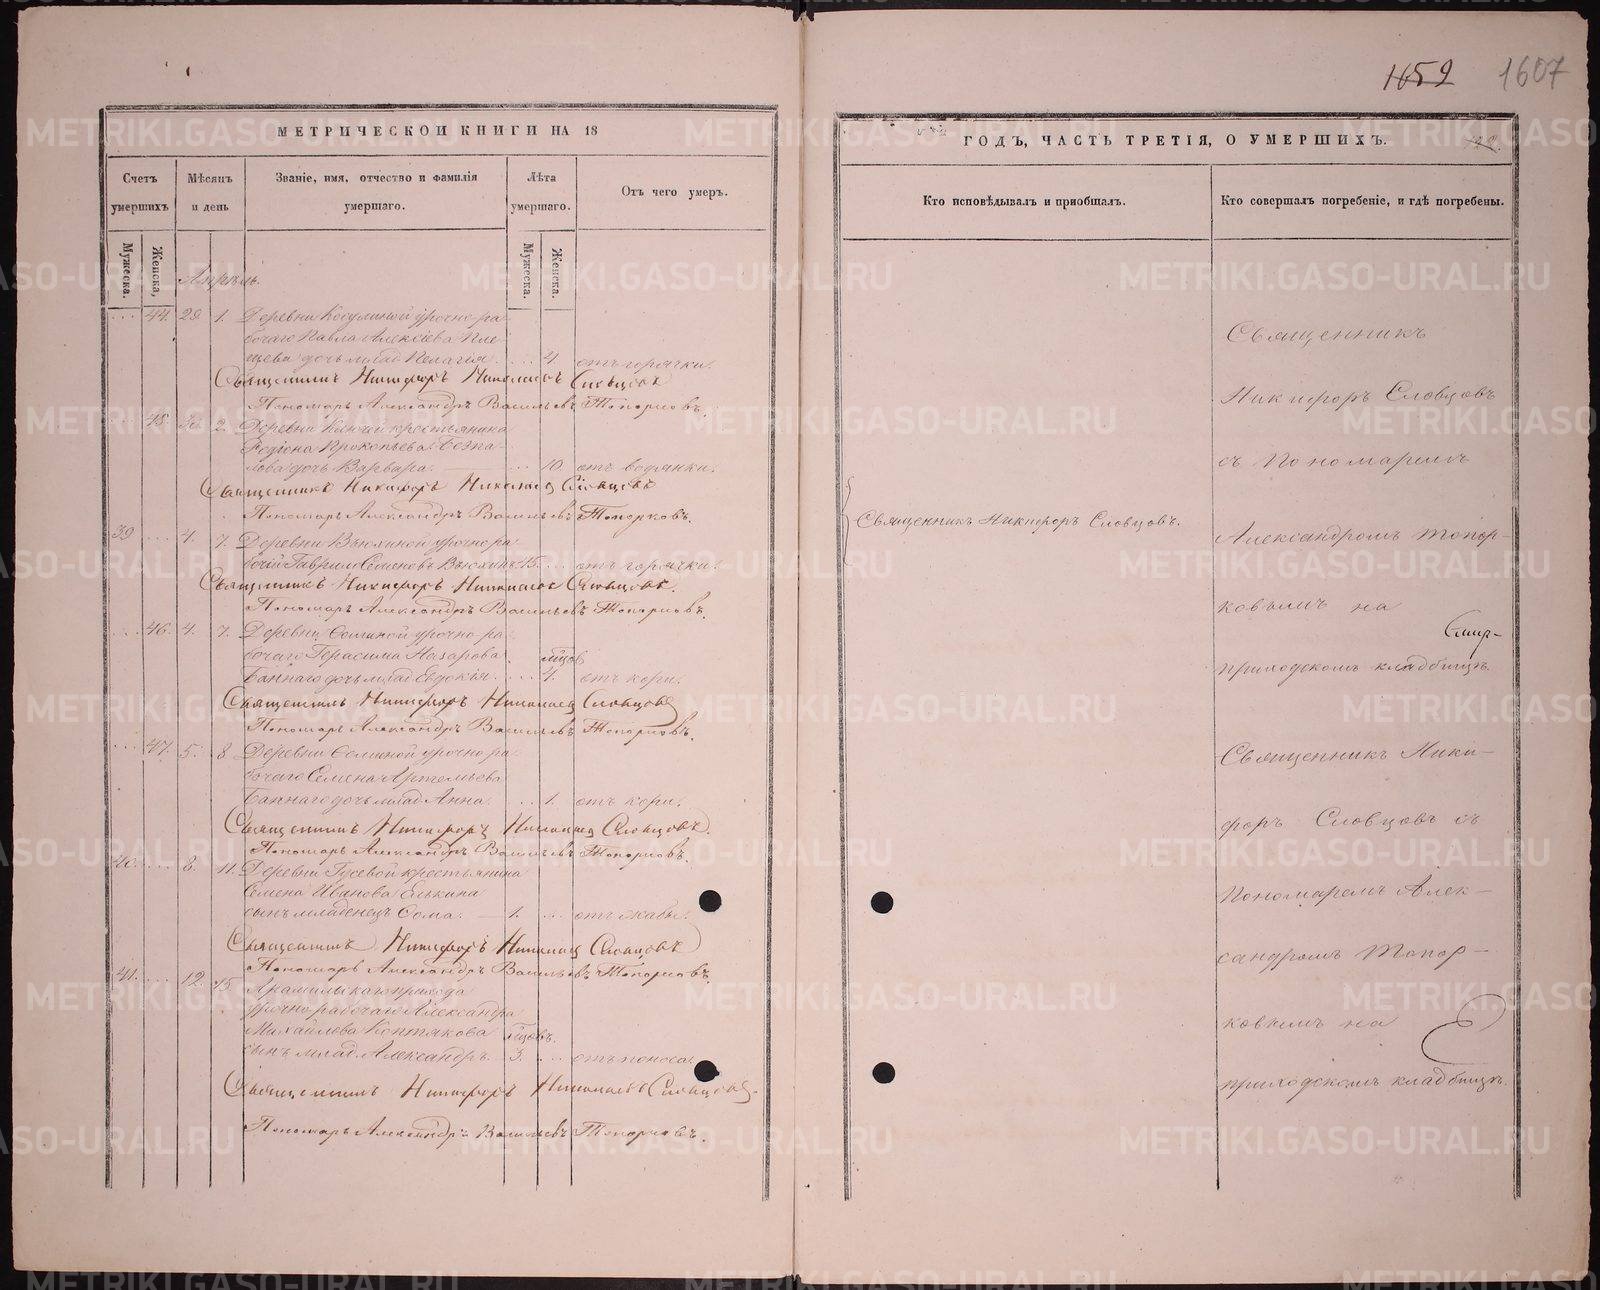 1659 1607
МЕТРИЧЕСКОЙ КНИГИ НА 18
Счетъ умершихъ
Мѣсяцъ и день
Званіе, имя, отчество и фамилія умершаго.
Лѣта умершаго.
Отъ чего умеръ.
Мужеска.
Женска.
Мужеска.
Женска.
Апрѣль.
44. 29. 1. Деревни Косулиной урочно ра-
бочаго Павла Алексѣева Пле-
щева дочь млад Пелагія. 4. отъ горячки.
Священникъ Никифоръ Николаевъ Словцовъ
Пономарь Александръ Васильевъ Топорковъ.
45. 30. 2. Деревни Ключей крестьянина
Родіона Прокопьева
дочь Варвара. 10. отъ водянки.
Священникъ Никифоръ Николаевъ Словцовъ
Пономарь Александръ Васильевъ Топорковъ.
39 4. 7. Деревни Вьюхиной урочно ра-
бочій Гаврилъ Семеновъ Вьюхинъ 15. отъ горячки.
Священникъ Никифоръ Николаевъ Словцовъ.
Пономарь Александръ Васильевъ Топорковъ.
46. 4. 7. Деревни урочно ра-
бочаго Герасима Назарова мѣсяцов
Баннаго дочь млад Евдокія. 4. отъ кори.
Священникъ Никифоръ Николаевъ Словцовъ
Пономарь Александръ Васильевъ Топорковъ.
47. 5. 8 Деревни урочно ра-
бочаго Семена Артемьева
Баннаго дочь млад Анна. 1. отъ кори.
Священникъ Никифоръ Николаевъ Словцовъ.
Пономарь Александръ Васильевъ Топорковъ.
40. 8. 11. Деревни Гусевой крестьянина
Семена Иванова Елькина
сынъ младенецъ Ѳома. 1. отъ жабы.
Священникъ Никифоръ Николаевъ Словцовъ
Пономарь Александръ Васильевъ Топорковъ.
41. 12. 15 Арамильскаго прихода
урочно рабочаго Александра
Михайлева Коптякова мѣсяцовъ.
сынъ млад Александръ. 3. отъ поноса.
Священникъ Никифоръ Николаевъ Словцовъ.
Пономарь Александръ Васильевъ Топорковъ.
ГОДЪ, ЧАСТЬ ТРЕТІЯ, О УМЕРШИХЪ.
Кто исповѣдывалъ и пріобщалъ.
Кто совершалъ погребеніе, и гдѣ погребены.
Священникъ Никифоръ Словцовъ.
Священникъ
Никифоръ Словцовъ
съ Пономаремъ
Александромъ Топор-
ковымъ на
приходскомъ кладбищѣ.
Священникъ Ники-
форъ Словцовъ съ
Пономаремъ Алек-
сандромъ Топор-
ковымъ на
приходскомъ кладбищѣ.
METRIKI.GASO-URAL.RU